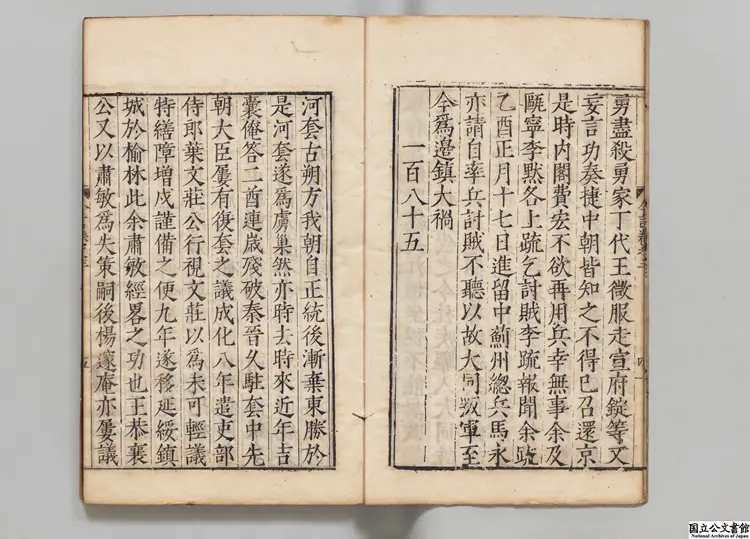 勇盡殺勇家丁代王微服走宣府錠等又
妄言功奏捷中朝皆知之不得已召還京
是時内閣費宏不欲再用兵幸無事余及
甌寧李默各上疏乞討賊李疏報聞余疏
乙酉正月十七日進留中薊州總兵馬永
亦請自率兵討賊不聽以故大同叛軍至
今爲邊鎮大禍
一百八十五
河套古朔方我朝自正統後漸棄東勝於
是河套遂爲虜巢然亦時去時來近年吉
囊俺答二酋連歲殘破秦晉久駐套中先
朝大臣屢有復套之議成化八年遣吏部
侍郎葉文莊公行視文莊以爲未可輕議
特繕障增戍謹備之便九年遂移延綏鎮
城於榆林此余肅敏經畧之功也王恭襄
公又以肅敏爲失策嗣後楊邃庵亦屢議
五
国立公文書館
National Archives of Japan